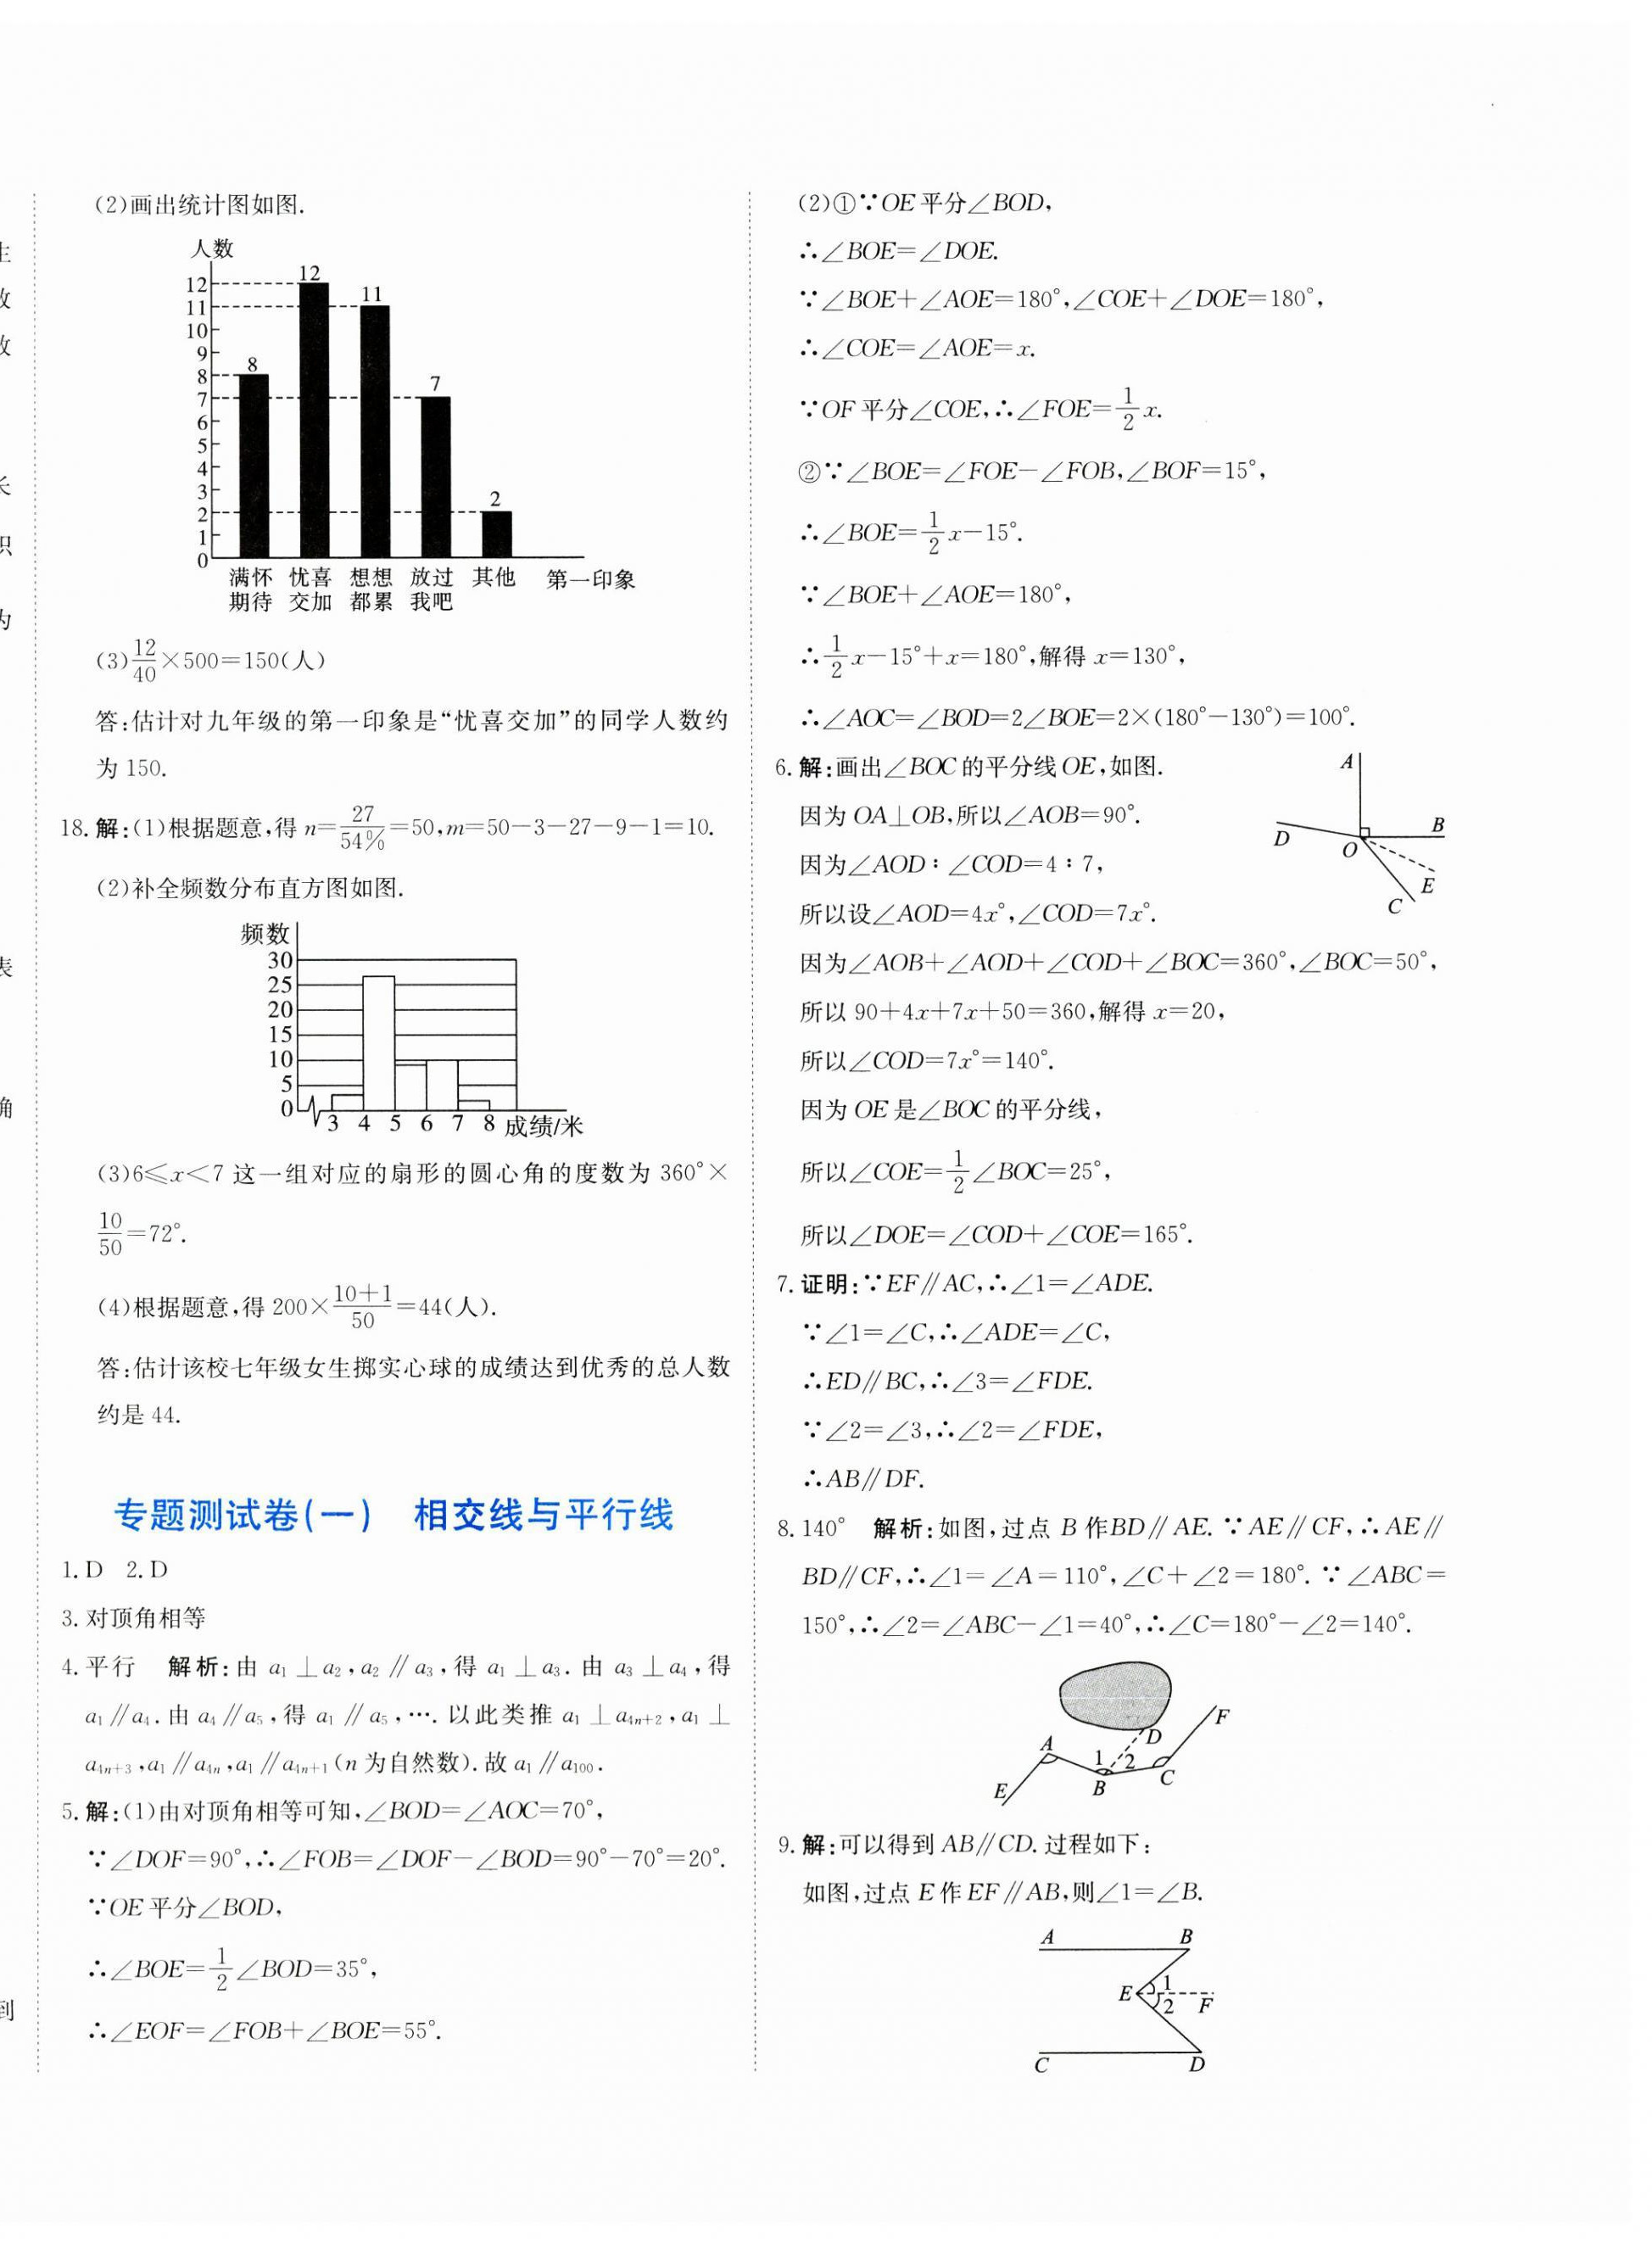 (2)画出统计图如图.
人数
12
11
10
9
8
7
6
5
4
3
2
1
0
8
12
11
7
2
满怀期待
忧喜交加
想想都累
放过我吧
其他
第一印象
(3)12/40×500=150(人)
答:估计对九年级的第一印象是“忧喜交加”的同学人数约
为 150.
18.解:(1)根据题意,得 n=27/54%=50,m=50-3-27-9-1=10.
(2)补全频数分布直方图如图.
频数
30
25
20
15
10
5
0
3 4 5 6 7 8 成绩/米
(3)6≤x<7 这一组对应的扇形的圆心角的度数为 360°×
10/50=72°.
(4)根据题意,得 200×(10+1)/50=44(人).
答:估计该校七年级女生掷实心球的成绩达到优秀的总人数
约是 44.
专题测试卷(一) 相交线与平行线
1.D 2.D
3.对顶角相等
4.平行 解析:由 a₁⊥a₂,a₂∥a₃,得 a₁⊥a₃.由 a₃⊥a₄,得
a₁∥a₄.由 a₄∥a₅,得 a₁∥a₅,….以此类推 a₁⊥a₄ₙ₊₂,a₁⊥
a₄ₙ₊₃,a₁∥a₄ₙ,a₁∥a₄ₙ₊₁(n 为自然数).故 a₁∥a₁₀₀.
5.解:(1)由对顶角相等可知,∠BOD=∠AOC=70°,
∵∠DOF=90°,∴∠FOB=∠DOF-∠BOD=90°-70°=20°.
∵OE 平分∠BOD,
∴∠BOE=1/2∠BOD=35°,
∴∠EOF=∠FOB+∠BOE=55°.
(2)①∵OE 平分∠BOD,
∴∠BOE=∠DOE.
∵∠BOE+∠AOE=180°,∠COE+∠DOE=180°,
∴∠COE=∠AOE=x.
∵OF 平分∠COE,∴∠FOE=1/2x.
②∵∠BOE=∠FOE-∠FOB,∠BOF=15°,
∴∠BOE=1/2x-15°.
∵∠BOE+∠AOE=180°,
∴1/2x-15°+x=180°,解得 x=130°,
∴∠AOC=∠BOD=2∠BOE=2×(180°-130°)=100°.
6.解:画出∠BOC 的平分线 OE,如图.
因为 OA⊥OB,所以∠AOB=90°.
因为∠AOD∶∠COD=4∶7,
所以设∠AOD=4x°,∠COD=7x°.
A
D
O
B
E
C
因为∠AOB+∠AOD+∠COD+∠BOC=360°,∠BOC=50°,
所以 90+4x+7x+50=360,解得 x=20,
所以∠COD=7x°=140°.
因为 OE 是∠BOC 的平分线,
所以∠COE=1/2∠BOC=25°,
所以∠DOE=∠COD+∠COE=165°.
7.证明:∵EF∥AC,∴∠1=∠ADE.
∵∠1=∠C,∴∠ADE=∠C,
∴ED∥BC,∴∠3=∠FDE.
∵∠2=∠3,∴∠2=∠FDE,
∴AB∥DF.
8.140° 解析:如图,过点 B 作BD∥AE.∵AE∥CF,∴AE∥
BD∥CF,∴∠1=∠A=110°,∠C+∠2=180°.∵∠ABC=
150°,∴∠2=∠ABC-∠1=40°,∴∠C=180°-∠2=140°.
A
E
1
2
B
D
C
F
9.解:可以得到 AB∥CD.过程如下:
如图,过点 E 作EF∥AB,则∠1=∠B.
A
B
E
1
2
F
C
D